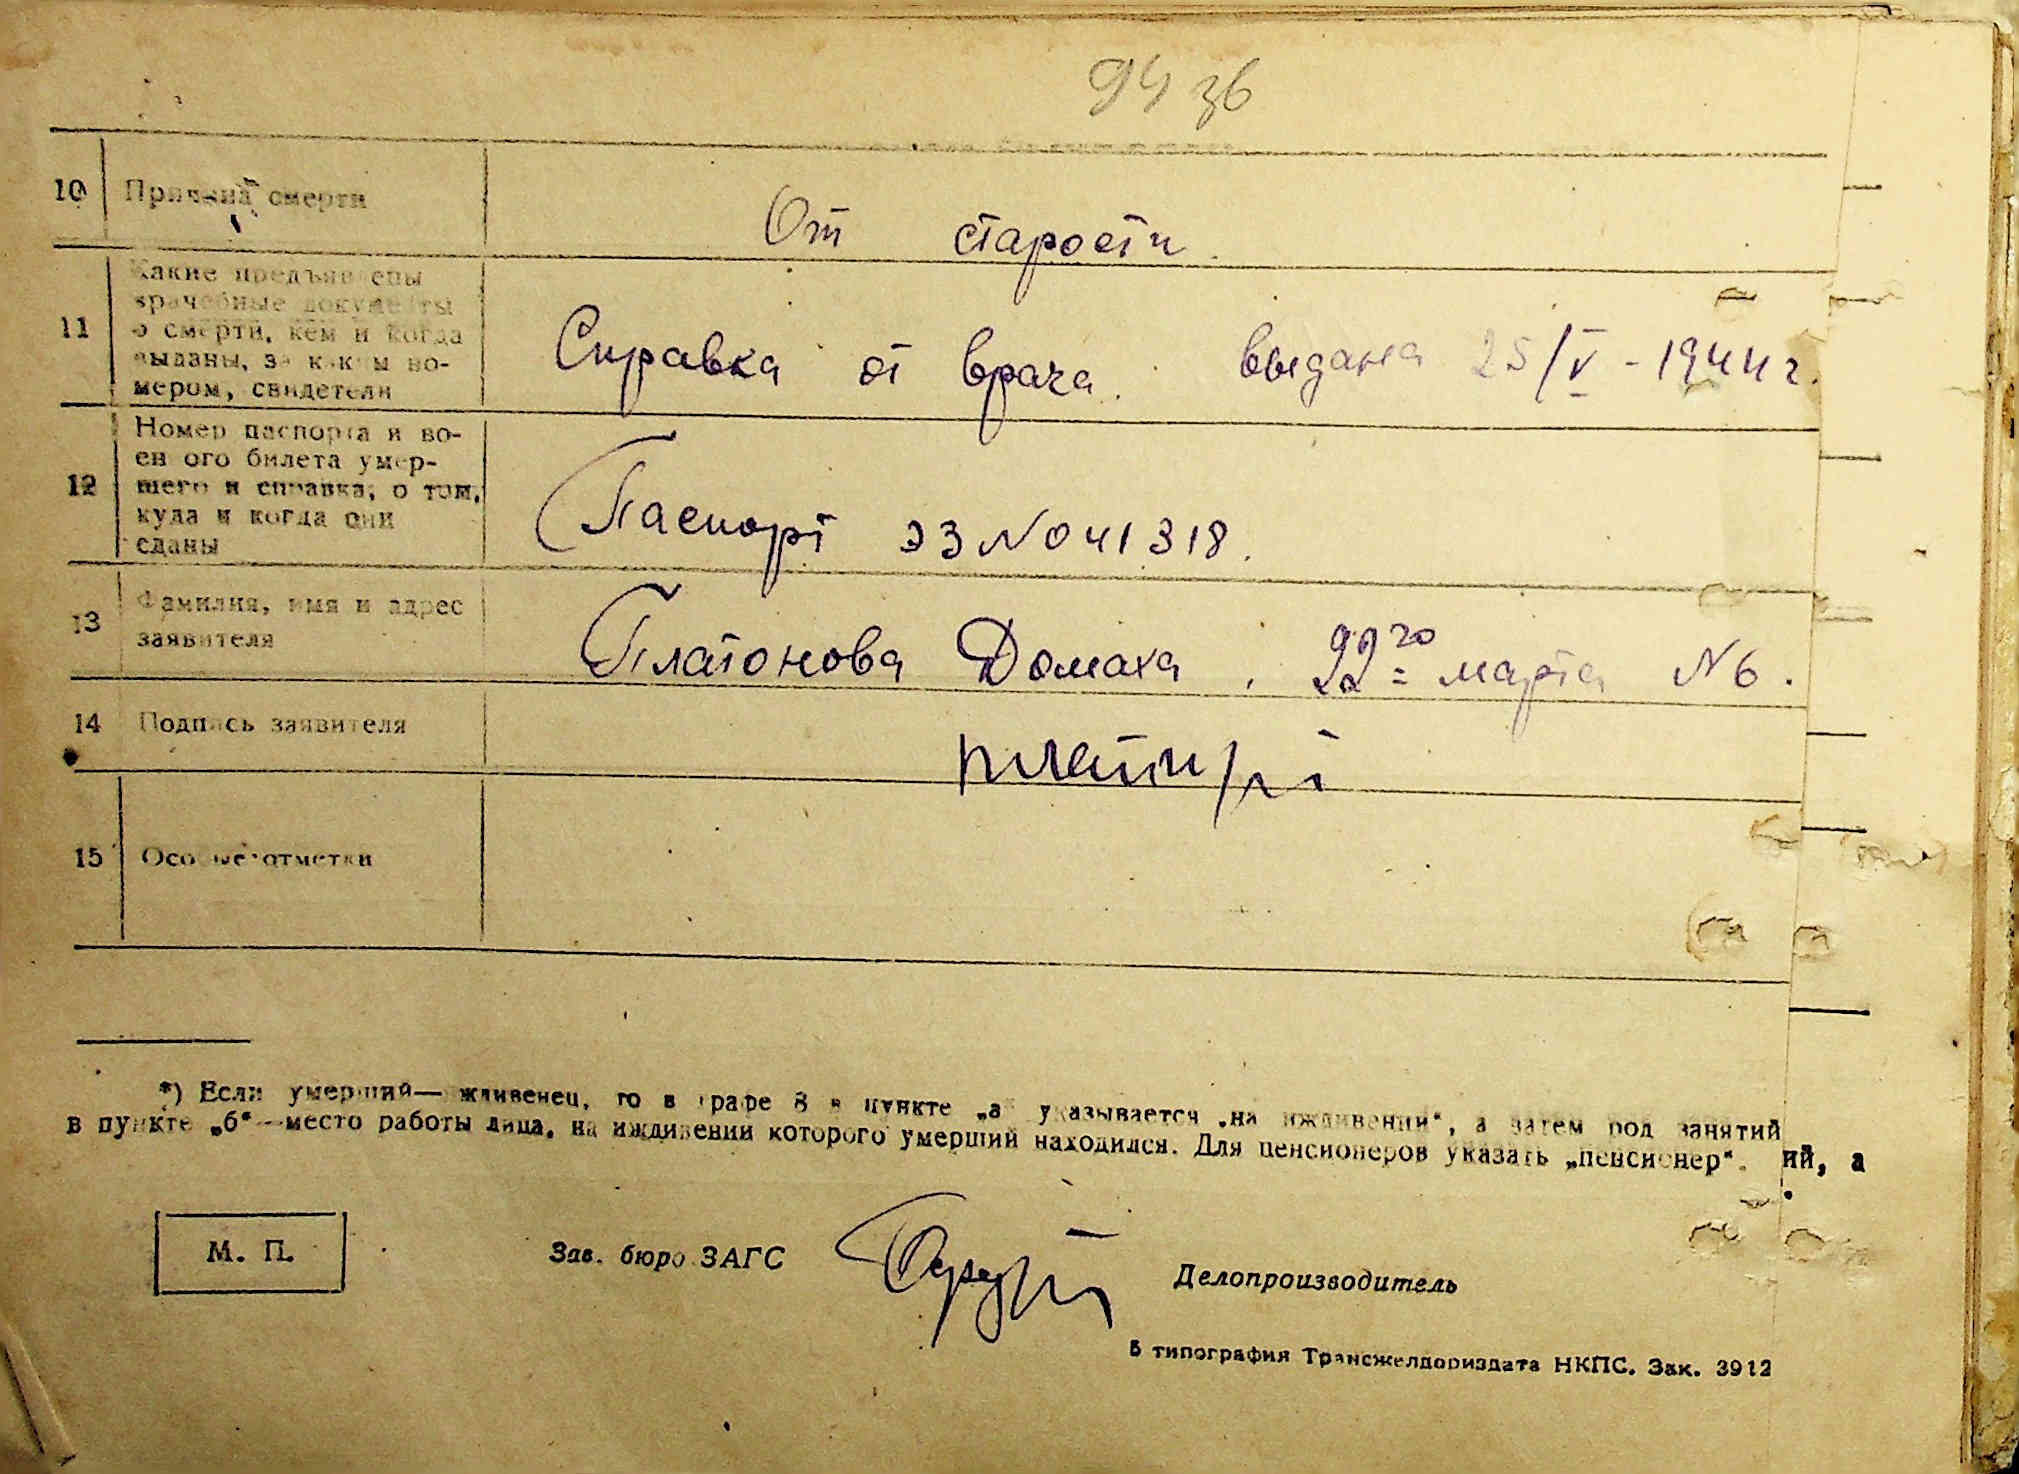 94 зв
10 Причина смерти От старости
11 Какие предъявлены
врачебные документы
о смерти, кем и когда
выданы, за каким но-
мером, свидетели
Справка от врача. выдана 25/V - 1944 г.
12 Номер паспорта и во-
енного билета умер-
шего и справка, о том,
куда и когда они
сданы
Паспорт ЭЗ N 041318.
13 Фамилия, имя и адрес
заявителя
Платонова Домаха, 22го марта N 6.
14 Подпись заявителя
15 Особые отметки
*) Если умерший—иждивенец, то в графе 8 в пункте „а“ указывается „на иждивении“, а затем род занятий
в пункте „б“—место работы лица, на иждивении которого умерший находился. Для пенсионеров указать „пенсионер“. ий, а
М. П. Зав. бюро ЗАГС Делопроизводитель
5 типография Трансжелдориздата НКПС. Зак. 3912